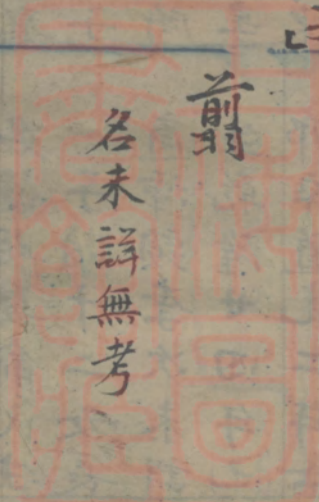 翦
名未詳無考